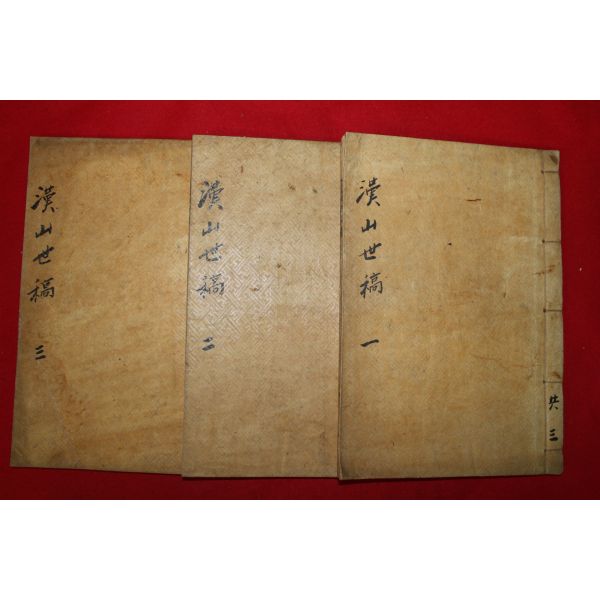 共三
漢山世稿 一
漢山世稿 二
漢山世稿 三